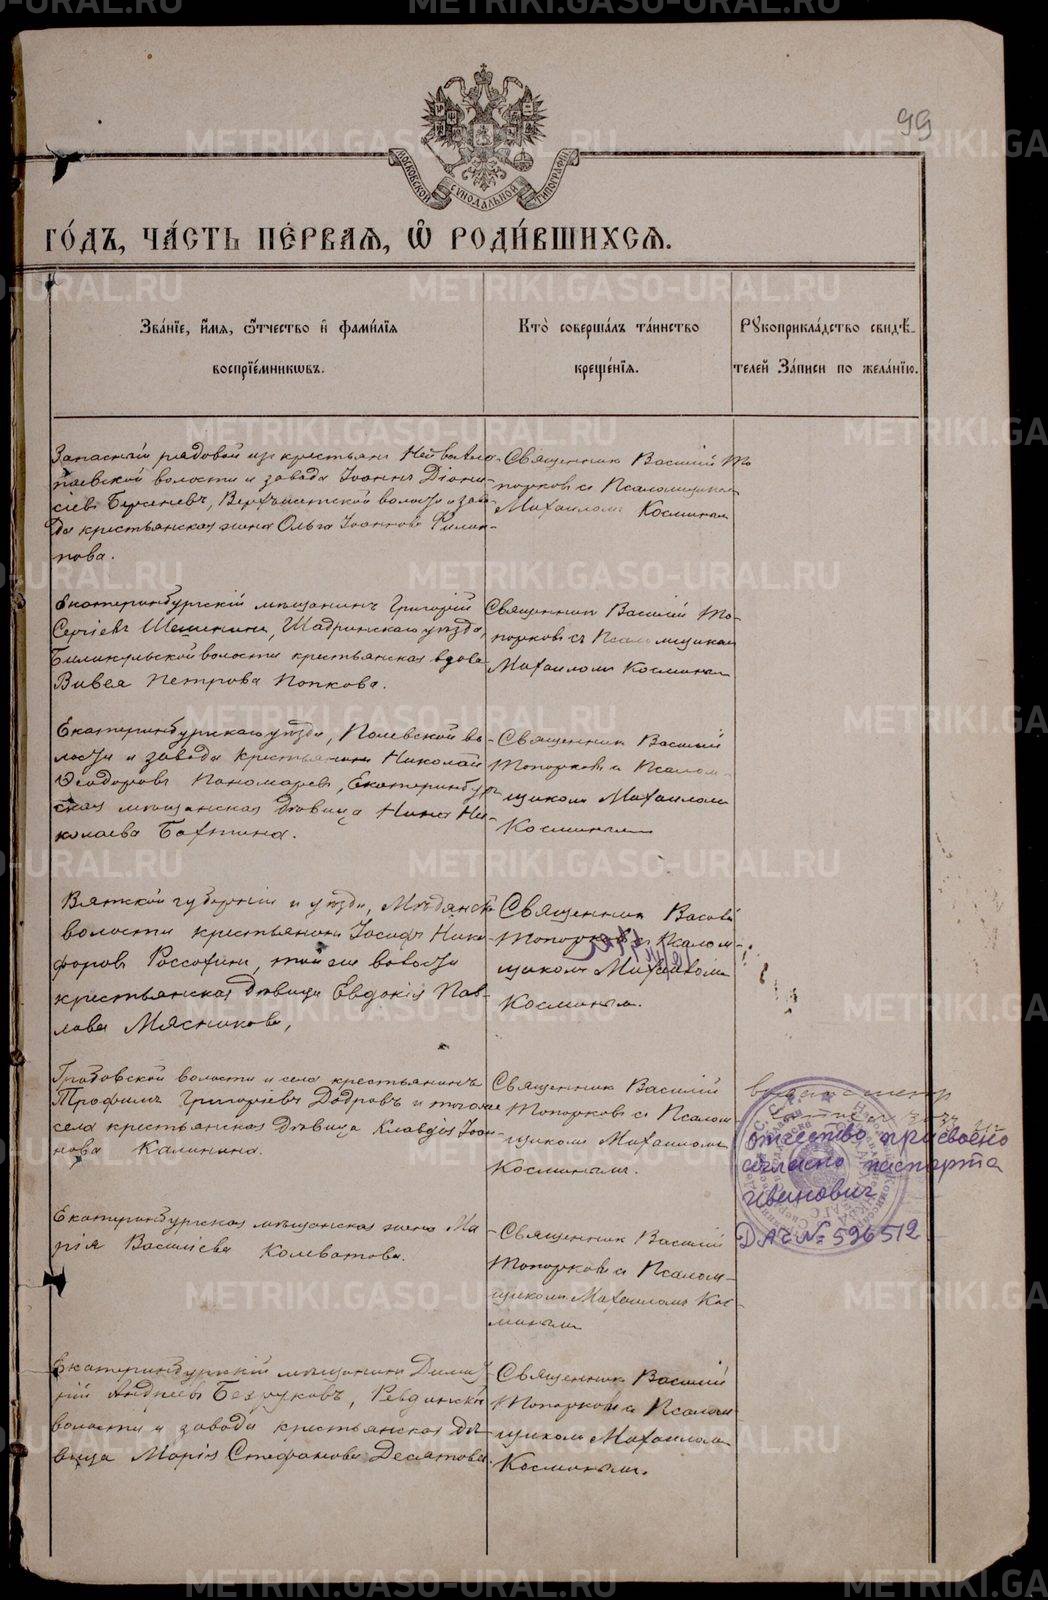 99
МОСКОВСКОЙ СѴНОДАЛЬНОЙ ТИПОГРАФІИ
ГО́ДЪ, ЧА́СТЬ ПЕ́РВАЯ, Ѽ РОДИ́ВШИХСЯ.
Зва́нїе, и҆́мя, ѻ҆́тчество и҆ фами́лїя
воспрїе́мникѡвъ.
Кто̀ соверша́лъ та́инство
креще́нїя.
Рꙋкоприкла́дство свидѣ́-
телей за́писи по жела́нїю.
Запасный рядовой изъ крестьянъ Нейво-Ала-
паевской волости и завода Іоаннъ Діони-
сіевъ Берсеневъ, волости и заво-
да крестьянская жена Ольга Іоаннова Филип-
пова.
Священникъ Василій То-
порковъ съ Псаломщикомъ
Михаиломъ Косминымъ
Екатеринбургскій мѣщанинъ Григорій
Сергіевъ Шадринскаго уѣзда,
волости крестьянская вдова
Петрова Попкова.
Священникъ Василій То-
порковъ съ Псаломщикомъ
Михаиломъ Косминымъ
Екатеринбургскаго уѣзда, Полевской во-
лости и завода крестьянинъ Николай
Ѳеодоровъ Пономаревъ, Екатеринбург-
ская мѣщанская дѣвица Нина Ни-
колаева Бахтина.
Священникъ Василій
Топорковъ съ Псалом-
щикомъ Михаиломъ
Косминымъ
Вятской губерніи и уѣзда, Мѣдянской
волости крестьянинъ Іосифъ Ники-
форовъ той же волости
крестьянская дѣвица Евдокія Пав-
лова Мясникова,
Священникъ Василій
Топорковъ съ Псалом-
щикомъ Михаиломъ
Косминымъ.
Грабовской волости и села крестьянинъ
Трофимъ Григорьевъ и того же
села крестьянская дѣвица Клавдія Іоан-
нова Калинина.
Священникъ Василій
Топорковъ съ Псалом-
щикомъ Михаиломъ
Косминымъ.
отчество присвоено
согласно паспорта
Иванович
№ 596512
Екатеринбургская мѣщанская жена Ма-
рія Василіева Колеватова.
Священникъ Василій
Топорковъ съ Псалом-
щикомъ Михаиломъ Кос-
минымъ
Екатеринбургскій мѣщанинъ Дими-
трій Андреевъ Безруковъ, Ревдинской
волости и завода крестьянская дѣ-
вица Марія Стефанова Десятова.
Священникъ Василій
Топорковъ съ Псалом-
щикомъ Михаиломъ
Косминымъ.
METRIKI.GASO-URAL.RU